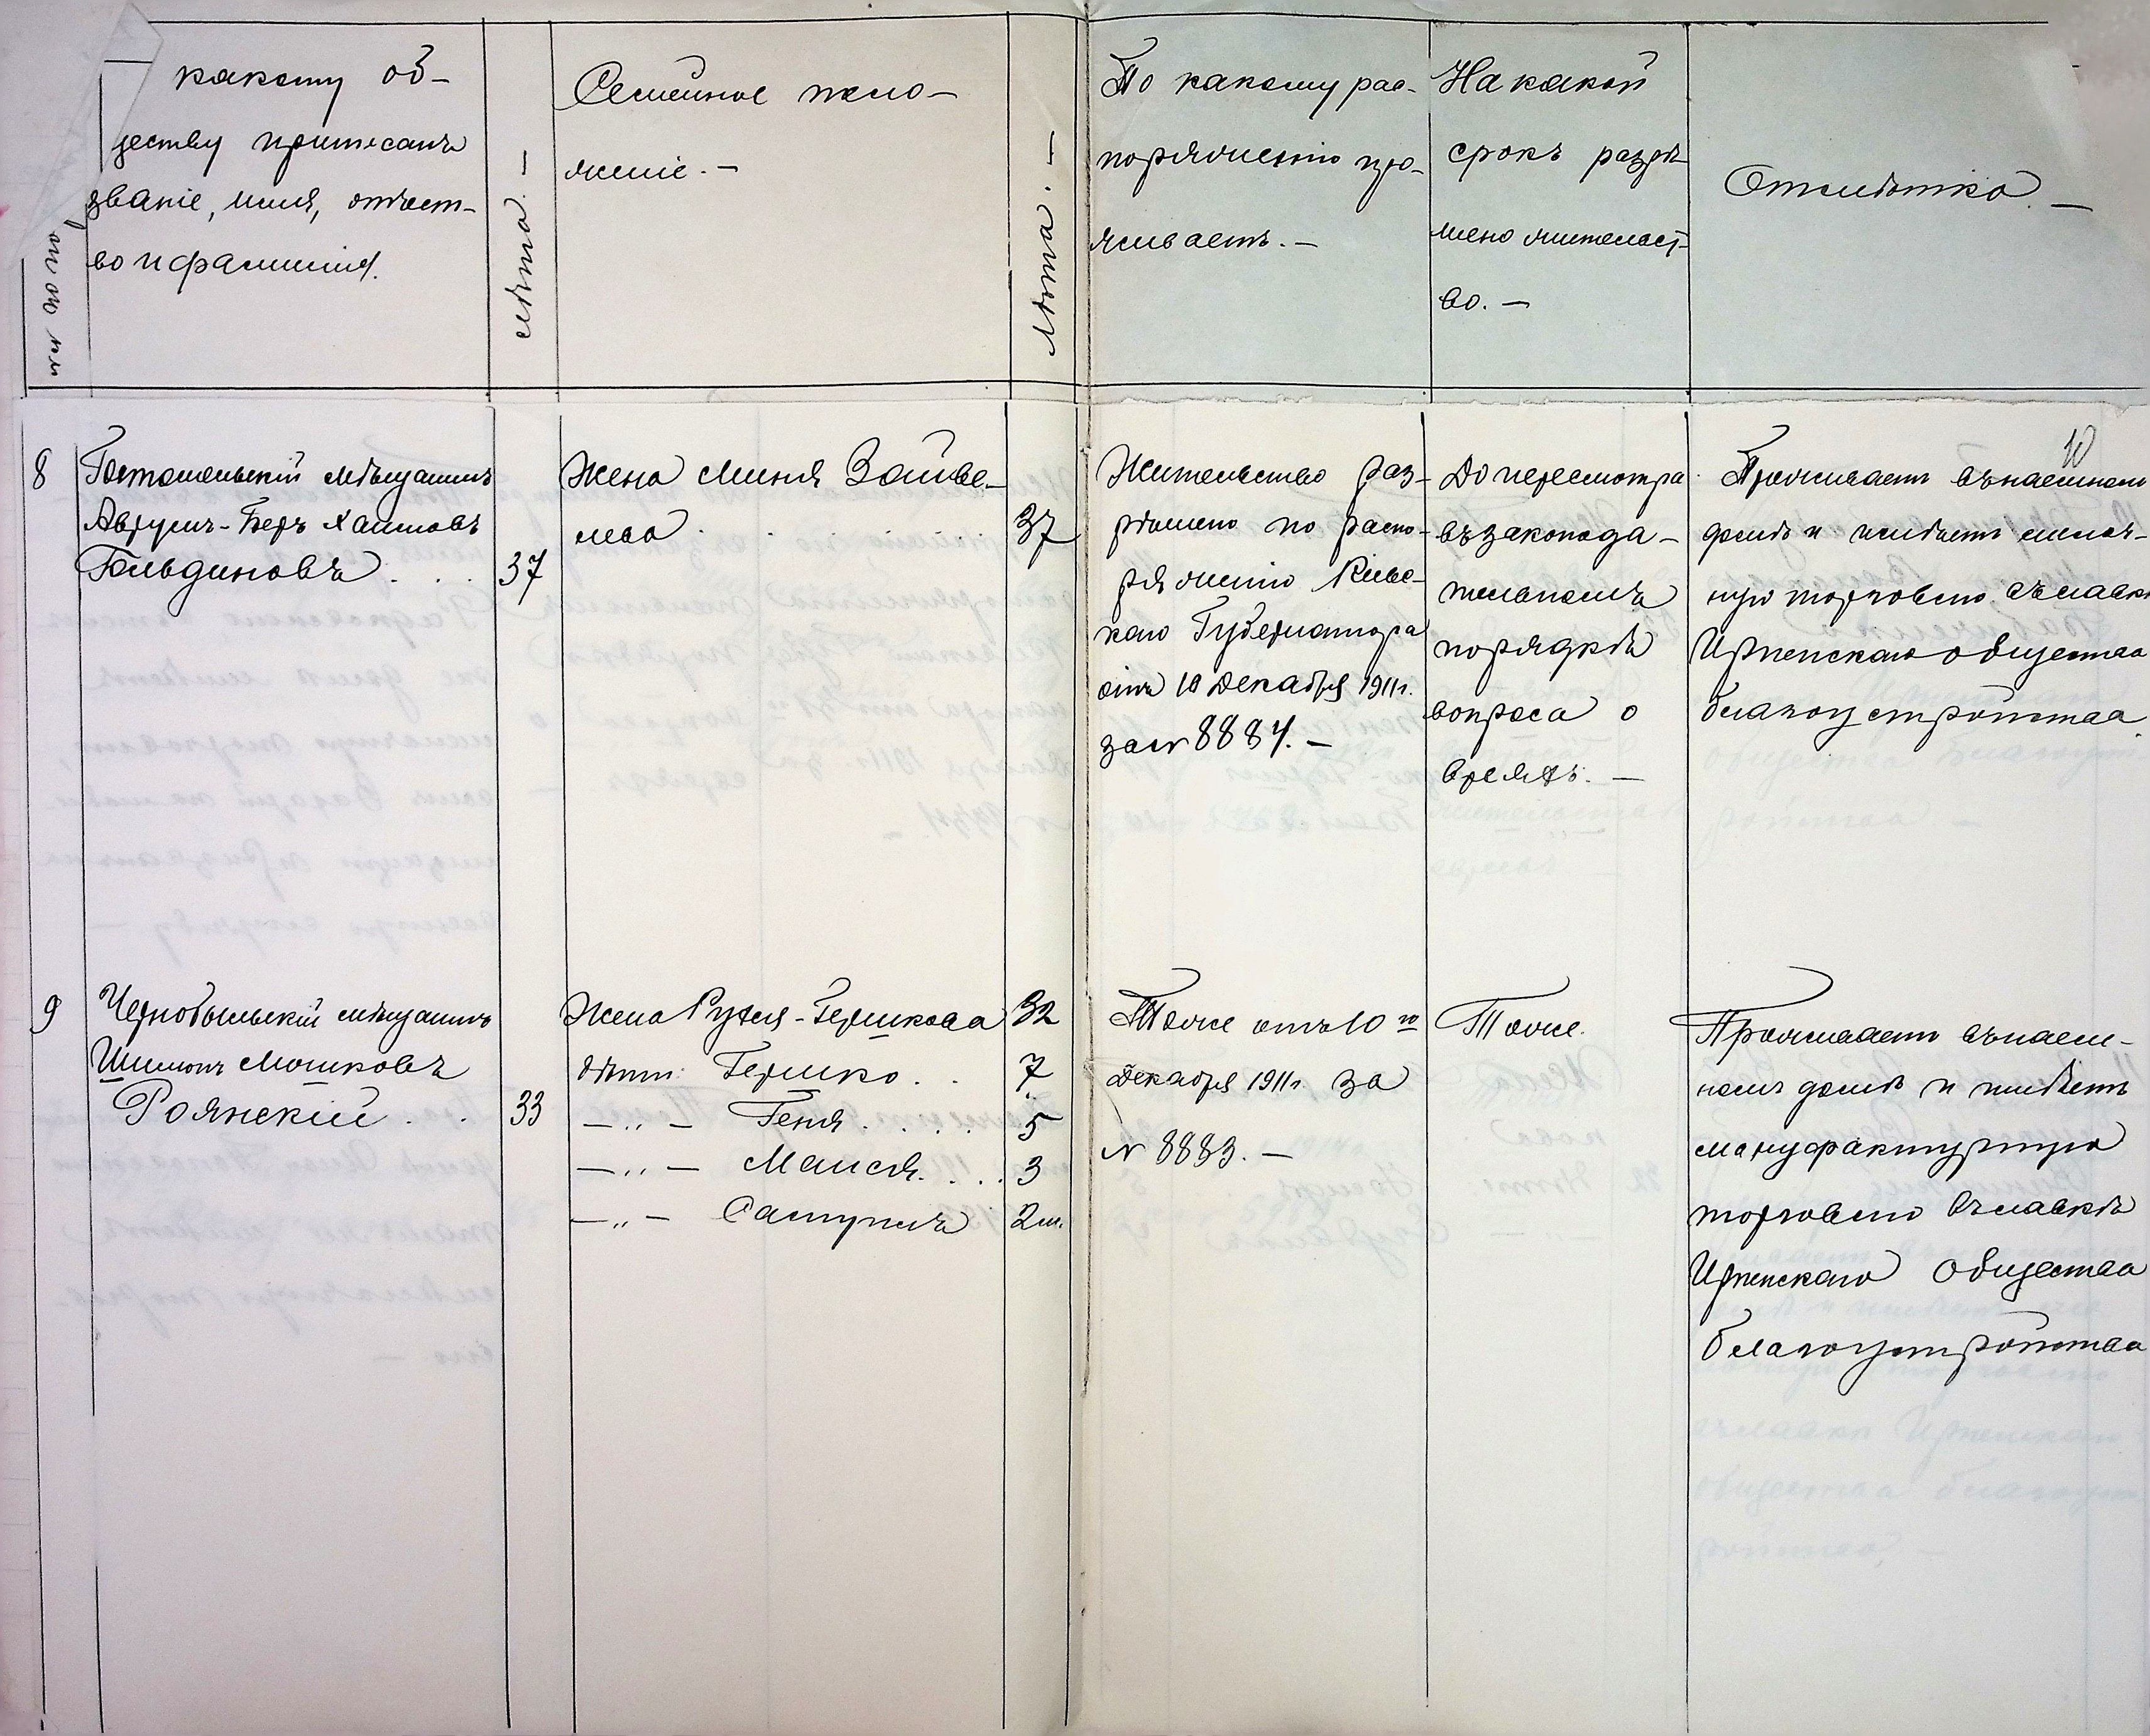 какому об-
ществу приписанъ
званіе, имя, отчест-
во и фамилія.
лѣта. —
Семейное поло-
женіе. —
Лѣта. —
По какому рас-
поряженію про-
живаетъ. —
На какой
срокъ разрѣ-
шено жительст-
во. —
Отмѣтка. —
10
8
Гостомельскій мѣщанинъ
Аврумъ-Беръ Хаимовъ
Гольдиновъ . . .
37
Жена Миня Вольве-
лева . . . . . .
37
Жительство раз-
рѣшено по распо-
ряженію Кіевс-
каго Губернатора
отъ 10 Декабря 1911 г.
за № 8884. —
До пересмотра
въ законода-
тельномъ
порядкѣ
вопроса о
евреяхъ. —
Проживаетъ въ наемномъ
домѣ и имѣетъ мелоч-
ную торговлю въ лавкѣ
Ирпенскаго общества
благоустройства.
9
Чернобыльскій мѣщанинъ
Шимонъ Мошковъ
Роянскій . .
33
Жена Рухля-Гершкова
32
дѣти: Гершко . .
7
— „ — Геня . . . .
5
— „ — Мойсей. . . .
3
— „ — Самуилъ
2 м.
Тоже отъ 10 го
Декабря 1911 г. за
№ 8883. —
Тоже.
Проживаетъ въ наем-
номъ домѣ и имѣетъ
мануфактурную
торговлю въ лавкѣ
Ирпенскаго Общества
благоустройства